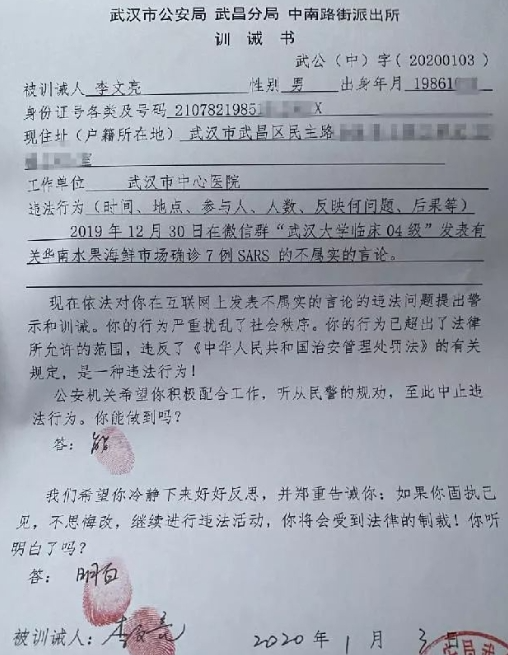 武汉市公安局 武昌分局 中南路街派出所
训诫书
武公（中）字（20200103）
被训诫人 李文亮 性别 男 出身年月 19861
身份证号各类及号码 21078219851 X
现住址（户籍所在地） 武汉市武昌区民主路
室
工作单位 武汉市中心医院
违法行为（时间、地点、参与人、人数、反映何问题、后果等）
2019 年 12 月 30 日在微信群“武汉大学临床 04 级”发表有
关华南水果海鲜市场确诊 7 例 SARS 的不属实的言论。
现在依法对你在互联网上发表不属实的言论的违法问题提出警
示和训诫。你的行为严重扰乱了社会秩序。你的行为已超出了法律
所允许的范围，违反了《中华人民共和国治安管理处罚法》的有关
规定，是一种违法行为！
公安机关希望你积极配合工作，听从民警的规劝，至此中止违
法行为。你能做到吗？
答：能
我们希望你冷静下来好好反思，并郑重告诫你：如果你固执己
见，不思悔改，继续进行违法活动，你将会受到法律的制裁！你听
明白了吗？
答：明白
被训诫人：李文亮 2020 年 1 月 3 日